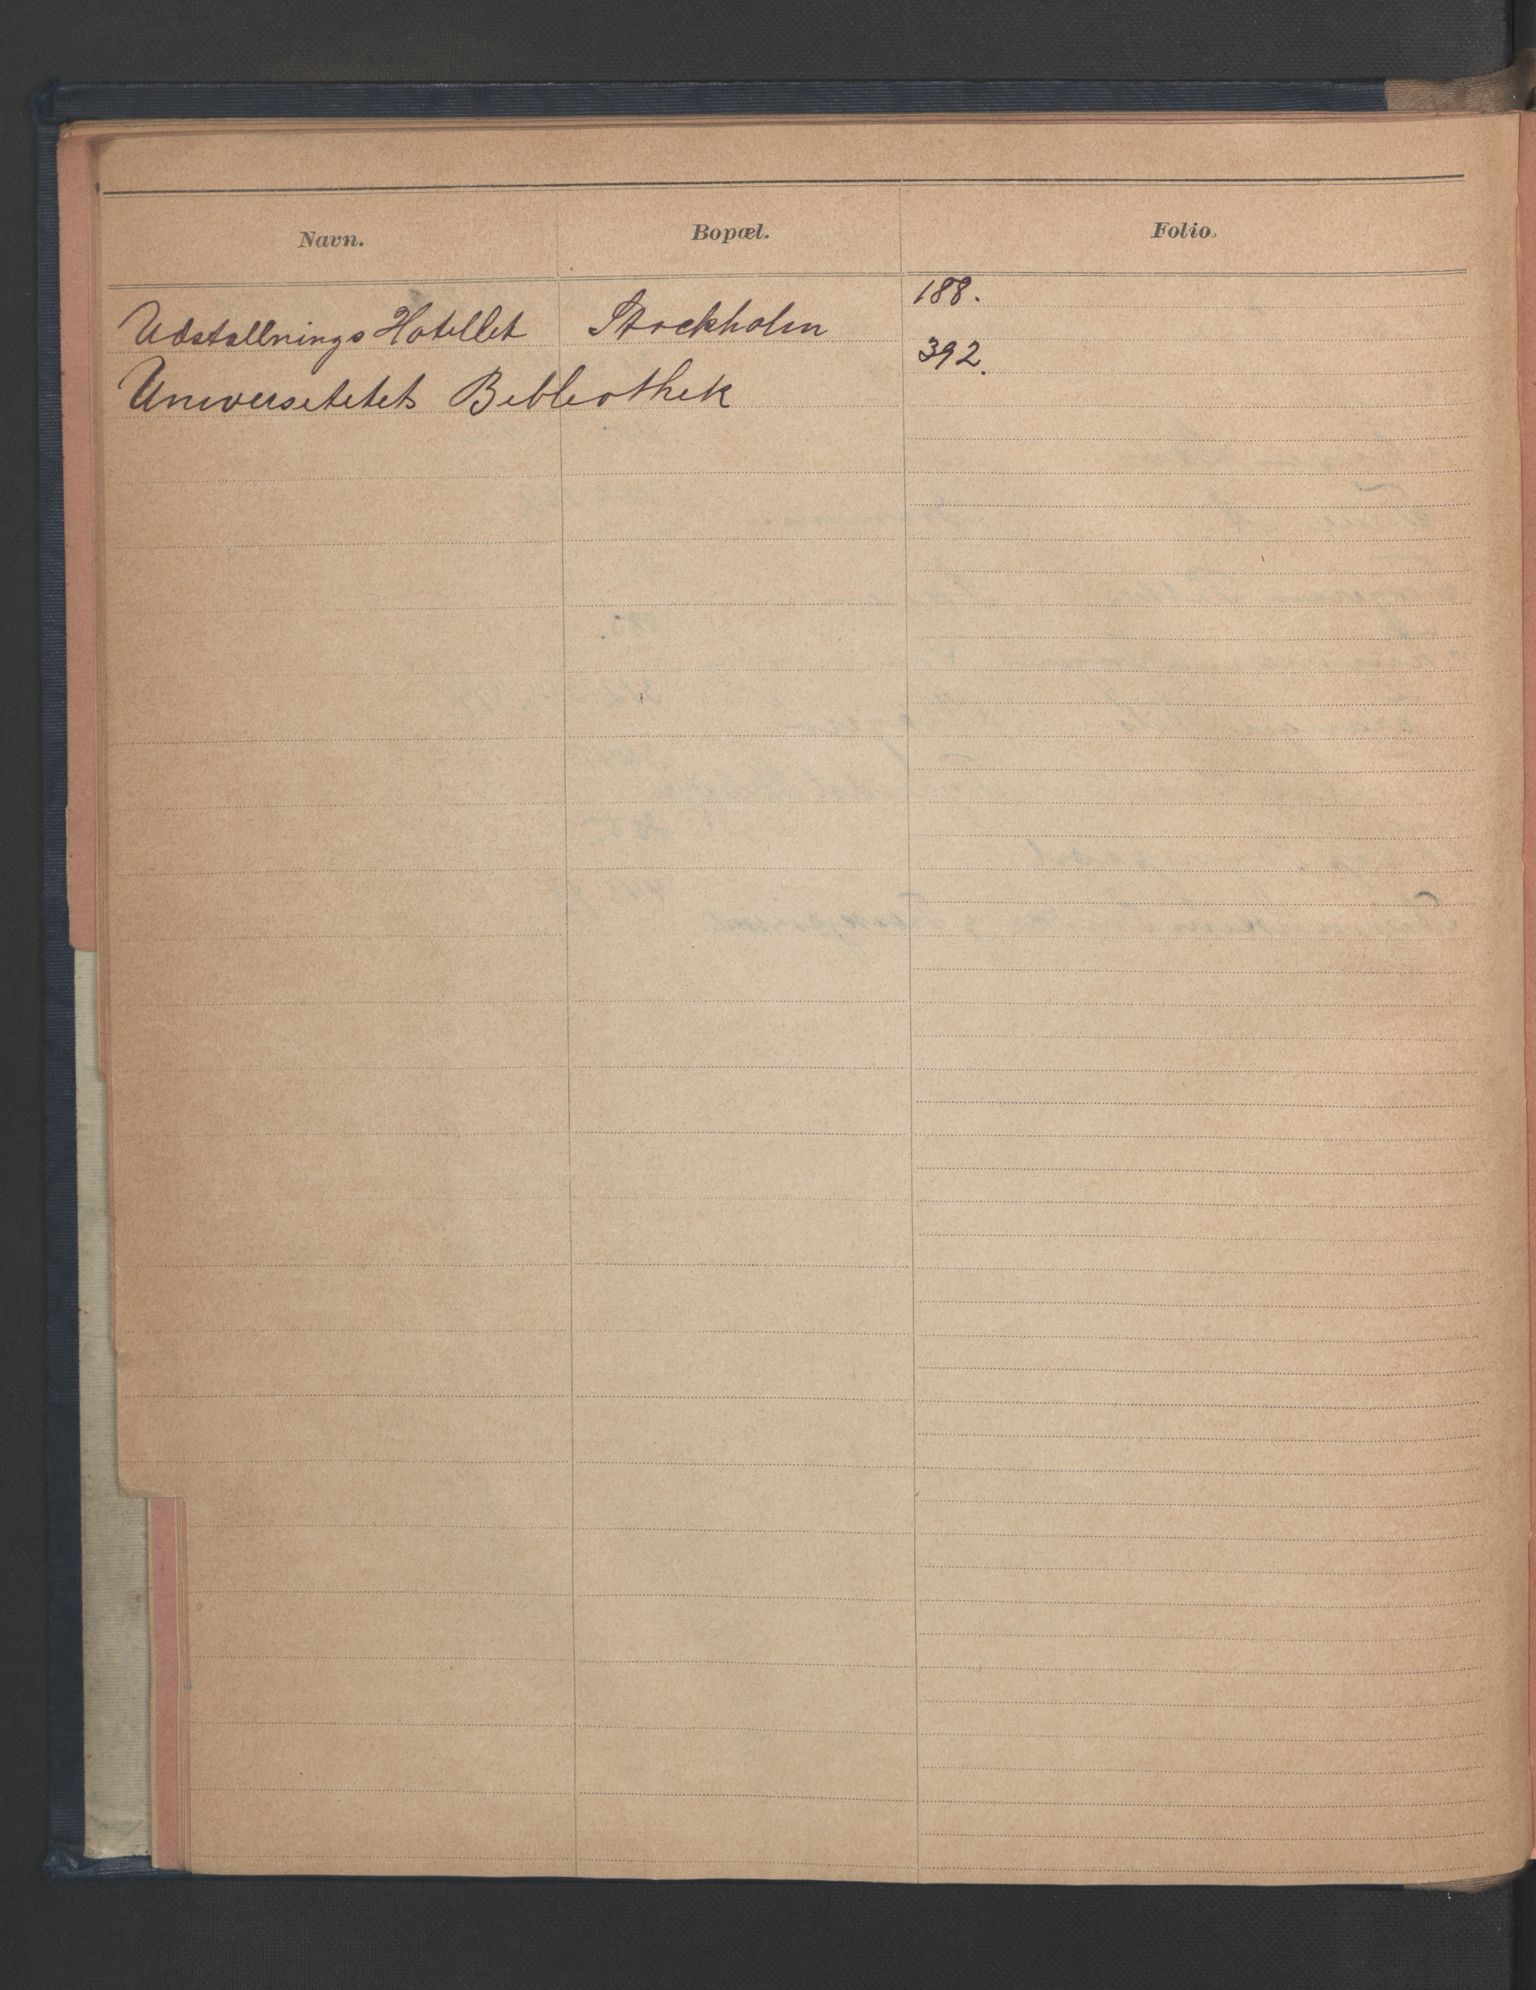 Navn. Bopæl. Folio.
Udstallnings Hotellet Stockholm 188.
Universitetets Bibliothek 392.